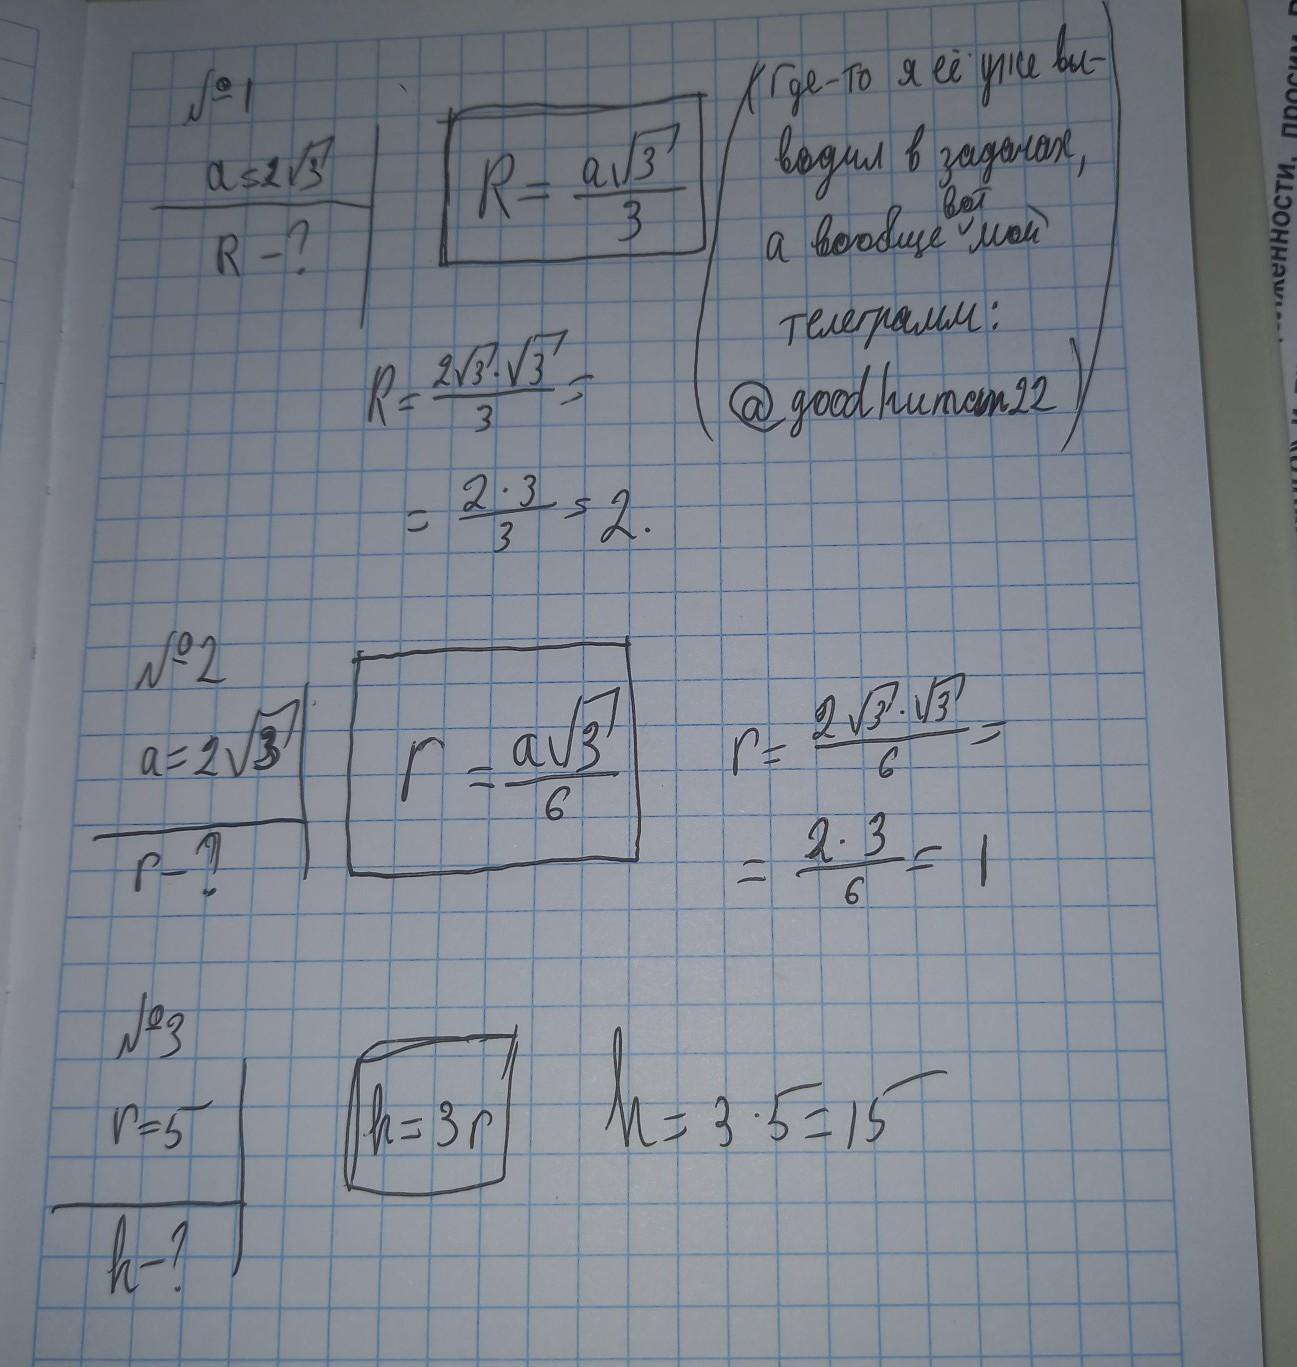 №1
a = 2√3
R - ?
R = a√3/3
(Где-то я её уже вы-
водил в задачах,
а вообще вот мой
телеграмм:
@goodhuman22)
R = 2√3·√3/3 =
= 2·3/3 = 2.
№2
a = 2√3
r - ?
r = a√3/6
r = 2√3·√3/6 =
= 2·3/6 = 1
№3
r = 5
h - ?
h = 3r
h = 3·5 = 15